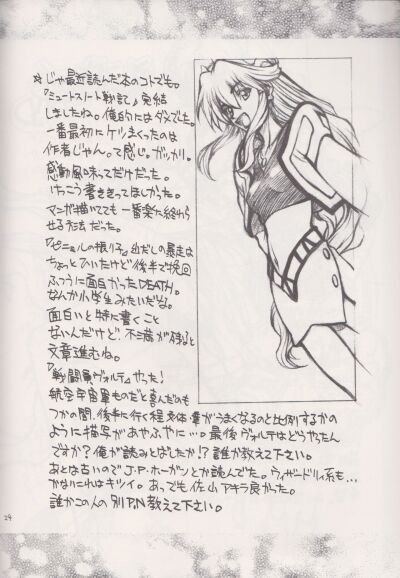 ☆じゃ最近読んだ本のコトでも。
『ミュートスノート戦記』完結
しましたね。俺的にはダメでした。
一番最初にケツまくったのは
作者じゃん。て感じ。ガッカリ。
感動風味ってだけだった。
けっこう書ききってほしかった。
マンガ描いてても一番楽な終わら
せる方法だった。
『ピニェルの振り子』出だしの暴走は
ちょっとひいたけど後半で挽回
ふつうに面白かったDEATH。
なんか小学生みたいだな。
面白いと特に書くこと
ないんだけど、不満が残ると
文章進むね。
『戦闘員ヴォルテ』やった!
航空宇宙軍ものだと喜んだのも
つかの間、後半に行く程文体 がうまくなるのと比例するかの
ように描写があやふやに…。最後ヴォルテはどうやったん
ですか?俺が読みとばしたか!?誰か教えて下さい。
あとは古いのでJ.P.ホーガンとか読んでた。ウィザードリィ系も…
かなりこれはキツイ。あっでも佐山アキラ良かった。
誰かこの人の別P.N教えて下さい。
29